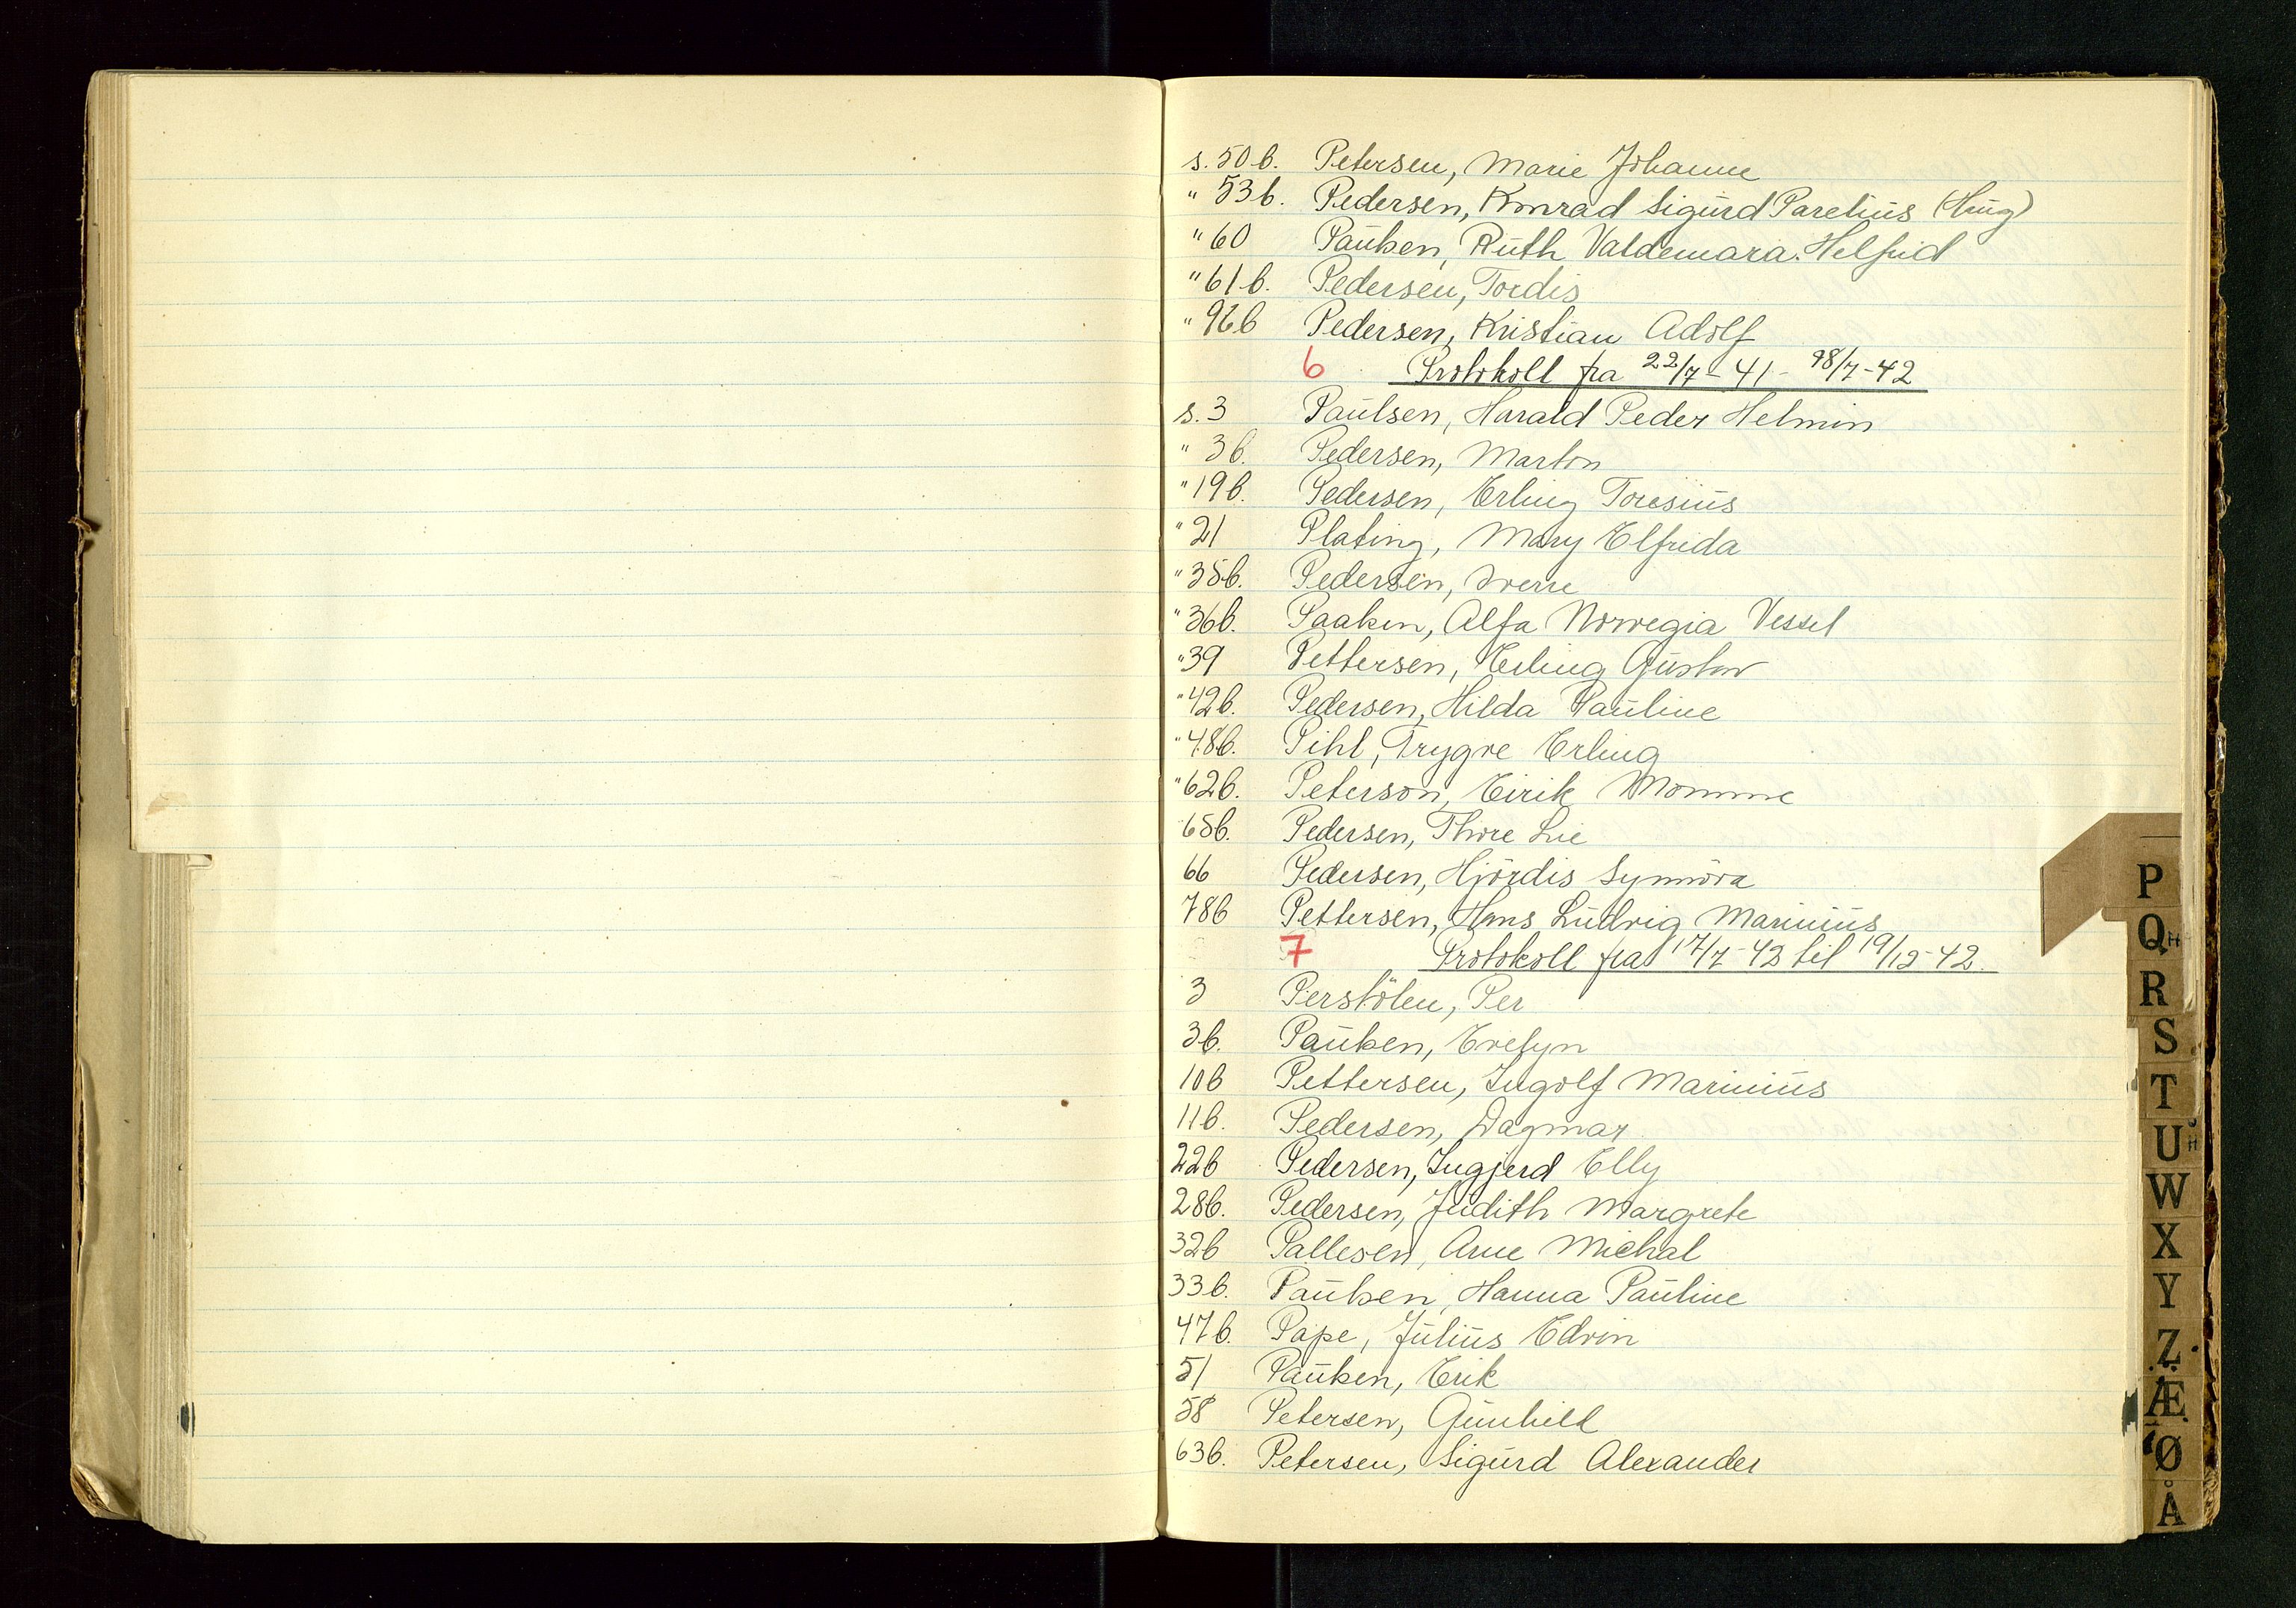 s. 50 b. Petersen, Marie Johanne
" 53 b. Pedersen, Konrad Sigurd Paretius (Haug)
" 60 Paulsen, Ruth Valdemara Helfrid
" 61 b. Pedersen, Tordis
" 96 b Pedersen, Kristian Adolf
6 Protokoll fra 22/7-41 - 18/7-42
s. 3 Paulsen, Harald Peder Helmin
" 3 b. Pedersen, Marton
" 19 b. Pedersen, Erling Toresius
" 21 Plating, Mary Elfrida
" 35 b. Pedersen, Sverre
" 36 b. Paaken, Alfa Norvegia Vessel
" 39 Pettersen, Erling Gustav
" 42 b. Pedersen, Hilda Pauline
" 48 b. Pihl, Trygve Erling
" 62 b. Peterson, Eirik Momme
65 b. Pedersen, Thore Lie
66 Pedersen, Hjördis Synnöva
78 b Pettersen, Hans Ludvig Marinius
7 Protokoll fra 17/7-42 til 19/12-42.
3 Perstölen, Per
3 b. Paulsen, Evelyn
10 b Pettersen, Ingolf Marinius
11 b. Pedersen, Dagmar
22 b Pedersen, Ingjerd Elly
28 b. Pedersen, Judith Margrete
32 b Pallesen, Arne Michal
33 b. Paulsen, Hanna Pauline
47 b. Pape, Julius Edvin
51 Paulsen, Erik
58 Petersen, Gunhild
63 b. Petersen, Sigurd Alexander
P
Q
R
S
T
U
W
X
Y
Z
Æ
Ø
Å